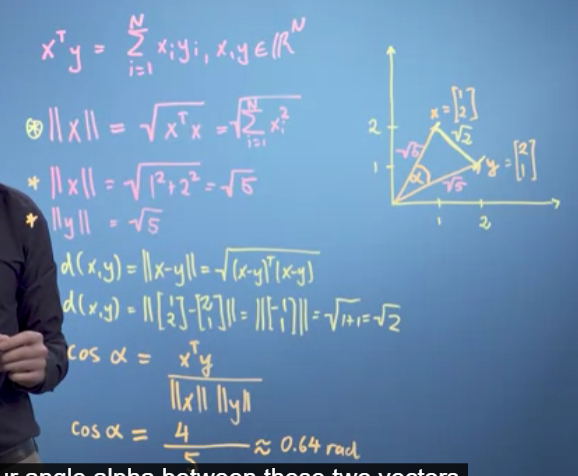 xᵀy = Σᵢ₌₁ᴺ xᵢyᵢ, x,y ∈ ℝᴺ
⊛ ||x|| = √(xᵀx) = √(Σᵢ₌₁ᴺ xᵢ²)
* ||x|| = √(1²+2²) = √5
* ||y|| = √5
d(x,y) = ||x-y|| = √((x-y)ᵀ(x-y))
d(x,y) = ||[1 2] - [2 1]|| = ||[-1 1]|| = √(1+1) = √2
cos α = xᵀy / (||x|| ||y||)
cos α = 4/5 ≈ 0.64 rad
x = [1 2]
2
√2
√5
y = [2 1]
1
α
√5
1 2
ur angle alpha between these two vectors